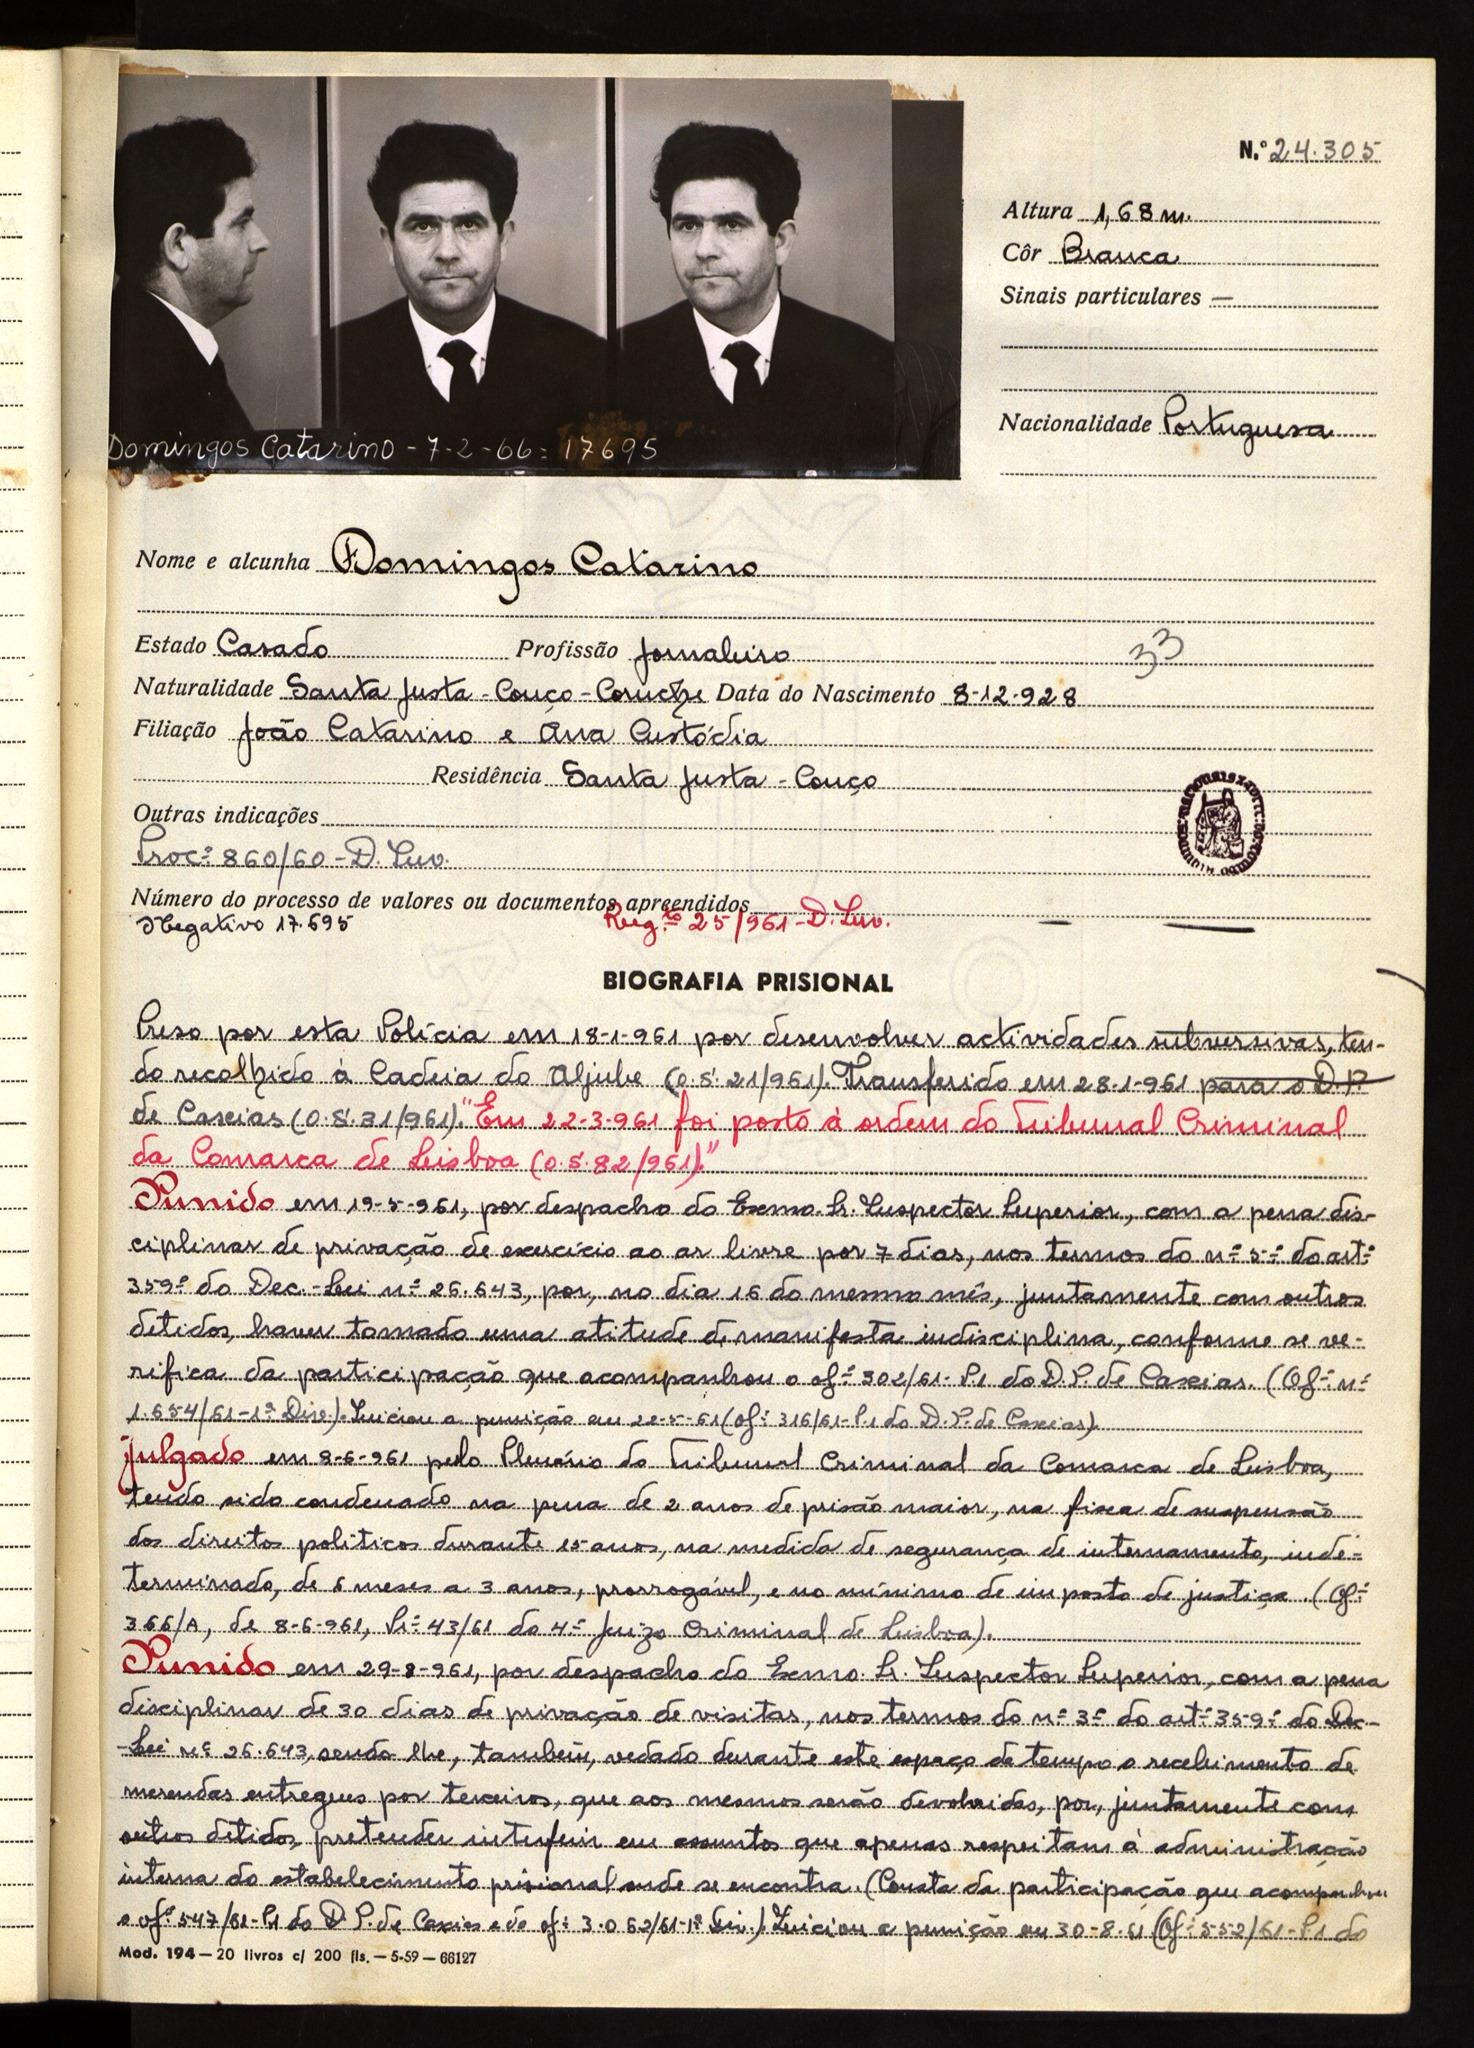 N.º 24.305
Altura 1,68 m.
Côr Branca
Sinais particulares —
Nacionalidade Portuguesa
Domingos Catarino - 7-2-66 = 17695
Nome e alcunha Domingos Catarino
Estado Casado Profissão Jornaleiro
33
Naturalidade Santa Justa - Couço - Coruche Data do Nascimento 8-12-928
Filiação João Catarino e Ana Custódia
Residência Santa Justa - Couço
Outras indicações
Proc.º 860/60 - D. Inv.
Número do processo de valores ou documentos apreendidos
Negativo 17.695 Reg.to 25/961 - D. Inv.
BIOGRAFIA PRISIONAL
Preso por esta Polícia em 18-1-961 por desenvolver actividades subversivas, ten-
do recolhido à Cadeia do Aljube (O.S. 21/961). Transferido em 28-1-961 para o D.P.
de Caxias (O.S. 31/961). "Em 22-3-961 foi posto à ordem do Tribunal Criminal
da Comarca de Lisboa (O.S. 82/961)."
Punido em 19-5-961, por despacho do Exmo. Sr. Inspector Superior, com a pena dis-
ciplinar de privação de exercício ao ar livre por 7 dias, nos termos do n.º 5.º do art.º
359.º do Dec.-Lei n.º 26.643, por, no dia 16 do mesmo mês, juntamente com outros
detidos, haver tomado uma atitude de manifesta indisciplina, conforme se ve-
rifica da participação que acompanhou o of.º 302/61-P.1 do D.P. de Caxias. (Of.º n.º
1.654/61-1ª Div.). Iniciou a punição em 22-5-61 (of.º 316/61-P.1 do D.P. de Caxias).
Julgado em 8-6-961 pelo Plenário do Tribunal Criminal da Comarca de Lisboa,
tendo sido condenado na pena de 2 anos de prisão maior, na fixa de suspensão
dos direitos políticos durante 15 anos, na medida de segurança de internamento, inde-
terminado, de 6 meses a 3 anos, prorrogável, e no mínimo de imposto de justiça. (Of.º
366/A, de 8-6-961, Pr.º 43/61 do 4.º Juizo Criminal de Lisboa).
Punido em 29-8-961, por despacho do Exmo. Sr. Inspector Superior, com a pena
disciplinar de 30 dias de privação de visitas, nos termos do n.º 3.º do art.º 359.º do Dec.-
-Lei n.º 26.643, sendo lhe, também, vedado durante este espaço de tempo o recebimento de
merendas entregues por terceiros, que aos mesmos serão devolvidas, por, juntamente com
outros detidos, pretender interferir em assuntos que apenas respeitam à administração
interna do estabelecimento prisional onde se encontra. (Consta da participação que acompanhou
o of.º 547/61-P.1 do D.P. de Caxias e do of.º 3.062/61-1ª Div.). Iniciou a punição em 30-8-61 (Of.º 552/61-P.1 do
Mod. 194 — 20 livros c/ 200 fls. — 5-59 — 66127